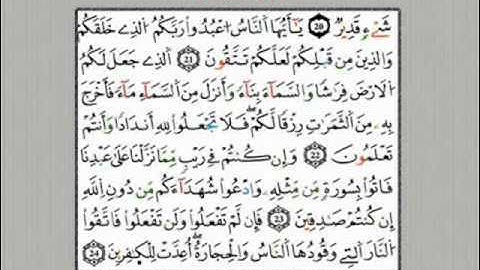 شَےْءٖ قَدِيرٌ ۖ 20 يَٰٓأَيُّهَا اَ۬لنَّاسُ اُ۟عْبُدُواْ رَبَّكُمُ اُ۬لذِے خَلَقَكُمْ
وَالذِينَ مِن قَبْلِكُمْ لَعَلَّكُمْ تَتَّقُونَ 21 اَ۬لذِے جَعَلَ لَكُمُ
اُ۬لَارْضَ فِرَٰشاٗ وَالسَّمَآءَ بِنَآءٗ وَأَنزَلَ مِنَ اَ۬لسَّمَآءِ مَآءٗ فَأَخْرَجَ
بِهِۦ مِنَ اَ۬لثَّمَرَٰتِ رِزْقاٗ لَّكُمْ فَلَا تَجْعَلُواْ لِلهِ أَندَاداٗ وَأَنتُمْ
تَعْلَمُونَ 22 وَإِن كُنتُمْ فِے رَيْبٖ مِّمَّا نَزَّلْنَا عَلَىٰ عَبْدِنَا
فَاتُواْ بِسُورَةٖ مِّن مِّثْلِهِۦ وَادْعُواْ شُهَدَآءَكُم مِّن دُونِ اِ۬للَّهِ
إِن كُنتُمْ صَٰدِقِينَ 23 فَإِن لَّمْ تَفْعَلُواْ وَلَن تَفْعَلُواْ فَاتَّقُواْ
اُ۬لنَّارَ اَ۬لتِے وَقُودُهَا اَ۬لنَّاسُ وَالْحِجَارَةُ أُعِدَّتْ لِلْكٰ۪فِرِينَ 24